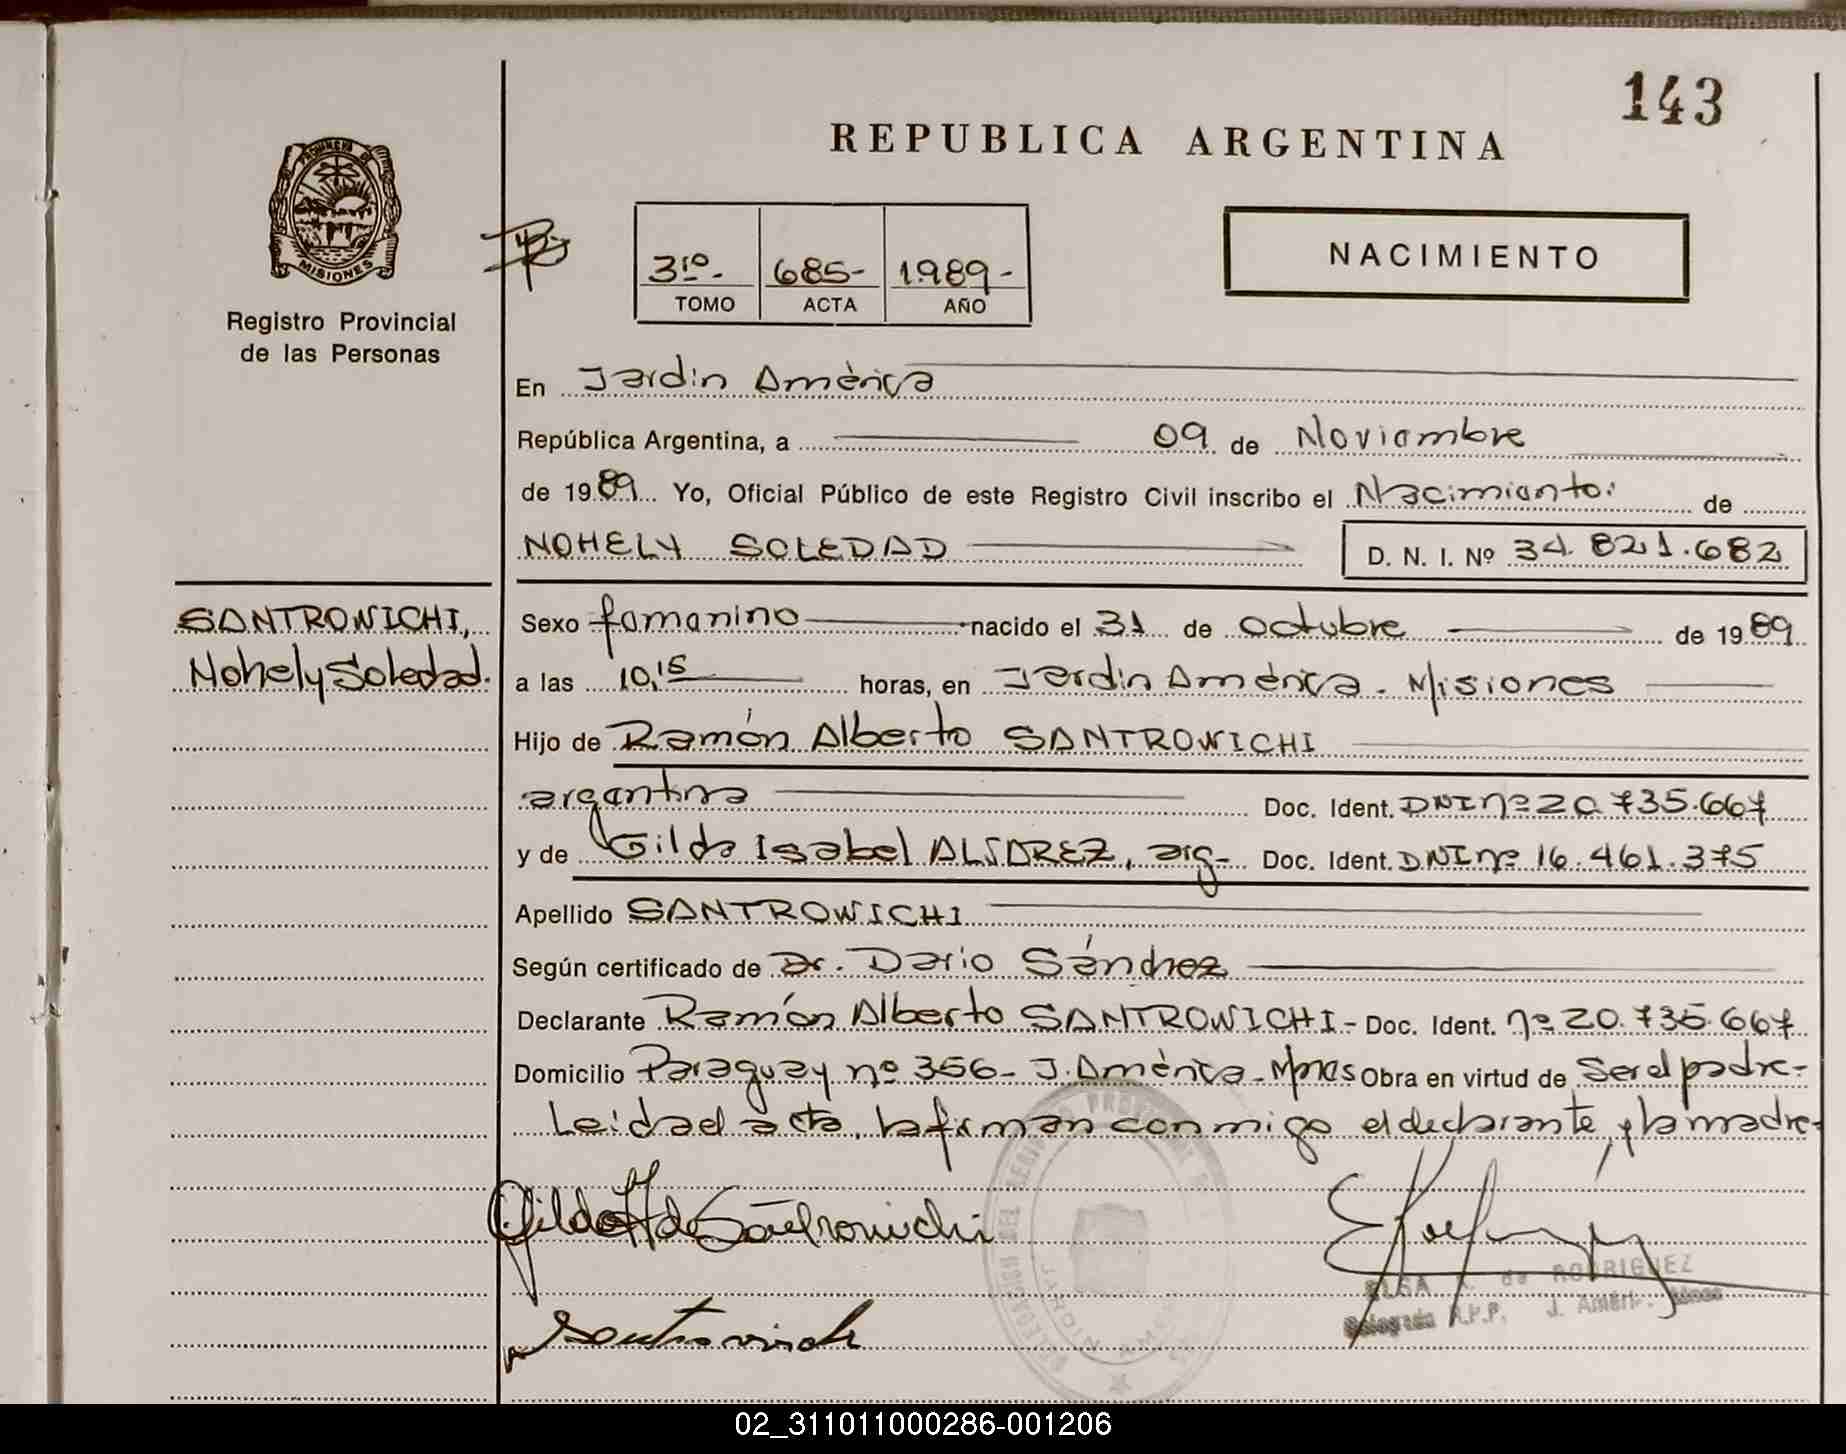 143
REPUBLICA ARGENTINA
PROVINCIA DE
MISIONES
Registro Provincial
de las Personas
3ro.- 685- 1.989-
TOMO ACTA AÑO
NACIMIENTO
En Jardin América
República Argentina, a 09 de Noviembre
de 1989 Yo, Oficial Público de este Registro Civil inscribo el Nacimiento: de
NOHELY SOLEDAD D. N. I. Nº 34.821.682
SANTROWICHI,
Nohely Soledad.
Sexo femenino nacido el 31 de octubre de 1989
a las 10,15 horas, en Jardin América - Misiones
Hijo de Ramón Alberto SANTROWICHI
argentina Doc. Ident. DNI nº 20.735.667
y de Gilda Isabel ALVAREZ, arg- Doc. Ident. DNI nº 16.461.375
Apellido SANTROWICHI
Según certificado de Dr. Dario Sánchez
Declarante Ramón Alberto SANTROWICHI - Doc. Ident. nº 20.735.667
Domicilio Paraguay nº 356- J. América - Mnes Obra en virtud de Ser el padre-
Leida el acta, la firman conmigo el declarante, y la madre-
Gilda A de Santrowichi
ELSA de RODRIGUEZ
Delegada R.P.P. J. Améri. Mnes
Santrowichi
02_311011000286-001206